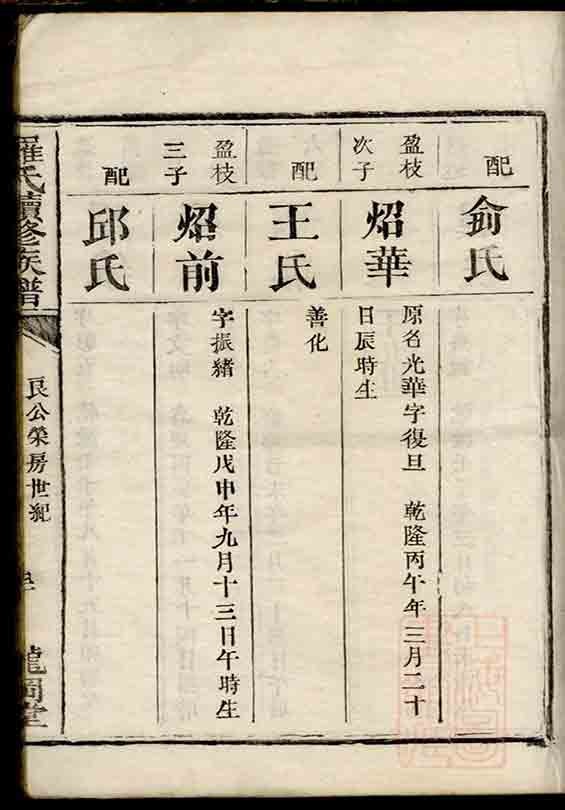 配
俞氏
盈枝
次子
炤華
原名光華字復旦 乾隆丙午年三月二十
日辰時生
配
王氏
善化
盈枝
三子
炤前
字振緒 乾隆戊申年九月十三日午時生
配
邱氏
羅氏續修族譜
艮公榮房世紀
龍岡堂